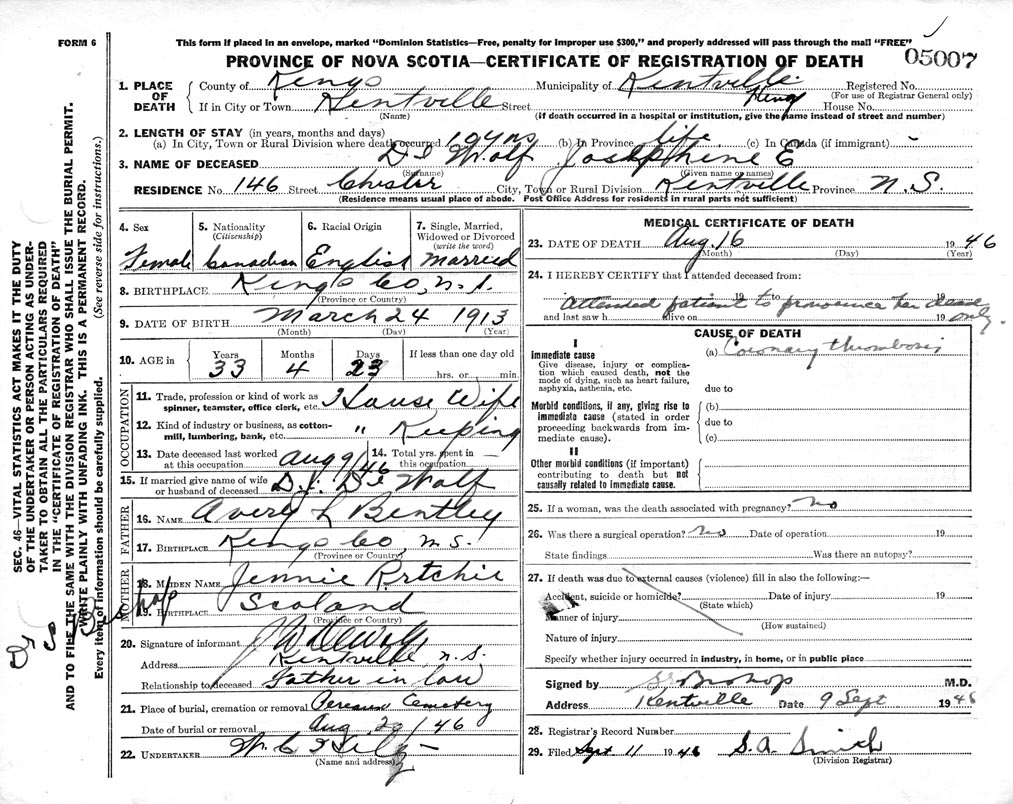 FORM 6
This form if placed in an envelope, marked "Dominion Statistics—Free, penalty for improper use $300," and properly addressed will pass through the mail "FREE"
05007
PROVINCE OF NOVA SCOTIA—CERTIFICATE OF REGISTRATION OF DEATH
1. PLACE OF DEATH
County of Kings Municipality of Kentville Kings Registered No.
(For use of Registrar General only)
If in City or Town Kentville Street House No.
(Name) (If death occurred in a hospital or institution, give the name instead of street and number)
2. LENGTH OF STAY (in years, months and days)
(a) In City, Town or Rural Division where death occurred 19 yrs (b) In Province life (c) In Canada (if immigrant) -
3. NAME OF DECEASED De Wolf Josephine E
(Surname) (Given name or names)
RESIDENCE No. 146 Street Chester City, Town or Rural Division Kentville Province N.S.
(Residence means usual place of abode. Post Office Address for residents in rural parts not sufficient)
4. Sex
Female
5. Nationality
(Citizenship)
Canadian
6. Racial Origin
English
7. Single, Married, Widowed or Divorced
(write the word)
Married
8. BIRTHPLACE Kings Co, N.S.
(Province or Country)
9. DATE OF BIRTH March 24 1913
(Month) (Day) (Year)
10. AGE in
Years Months Days If less than one day old
33 4 23 hrs. or min.
OCCUPATION
11. Trade, profession or kind of work as
spinner, teamster, office clerk, etc. House Wife
12. Kind of industry or business, as cotton-
mill, lumbering, bank, etc. " Keeping
13. Date deceased last worked
at this occupation Aug 9/46
14. Total yrs. spent in
this occupation —
15. If married give name of wife
or husband of deceased D.J. De Wolf
FATHER
16. NAME Avery L Bentley
17. BIRTHPLACE Kings Co, N.S.
(Province or Country)
MOTHER
18. MAIDEN NAME Jennie Ritchie
19. BIRTHPLACE Scoland
(Province or Country)
20. Signature of informant
Address Kentville, N.S.
Relationship to deceased Father in law
21. Place of burial, cremation or removal Cemetery
Date of burial or removal Aug 20/46
22. UNDERTAKER
(Name and address)
MEDICAL CERTIFICATE OF DEATH
23. DATE OF DEATH Aug. 16 1946
(Month) (Day) (Year)
24. I HEREBY CERTIFY that I attended deceased from:
19 to 19
Attended patient to pronounce her dead only.
and last saw h alive on 19
CAUSE OF DEATH
I
Immediate cause
Give disease, injury or complica-
tion which caused death, not the
mode of dying, such as heart failure,
asphyxia, asthenia, etc.
(a) Coronary thrombosis
due to
Morbid conditions, if any, giving rise to
immediate cause (stated in order
proceeding backwards from im-
mediate cause).
(b)
due to
(c)
II
Other morbid conditions (if important)
contributing to death but not
causally related to immediate cause.
25. If a woman, was the death associated with pregnancy? No
26. Was there a surgical operation? No Date of operation 19
State findings Was there an autopsy?
27. If death was due to external causes (violence) fill in also the following:—
Accident, suicide or homicide? Date of injury 19
(State which)
Manner of injury
(How sustained)
Nature of injury
Specify whether injury occurred in industry, in home, or in public place
Signed by Bishop M.D.
Address Kentville Date 9 Sept 1946
28. Registrar's Record Number
29. Filed Sept 11 1946 S.A. Smith
(Division Registrar)
SEC. 46—VITAL STATISTICS ACT MAKES IT THE DUTY
OF THE UNDERTAKER OR PERSON ACTING AS UNDER-
TAKER TO OBTAIN ALL THE PARTICULARS REQUIRED
IN THE "CERTIFICATE OF REGISTRATION OF DEATH"
AND TO FILE THE SAME WITH THE DIVISION REGISTRAR WHO SHALL ISSUE THE BURIAL PERMIT.
WRITE PLAINLY WITH UNFADING INK. THIS IS A PERMANENT RECORD.
Every item of information should be carefully supplied. (See reverse side for instructions.)
Bishop